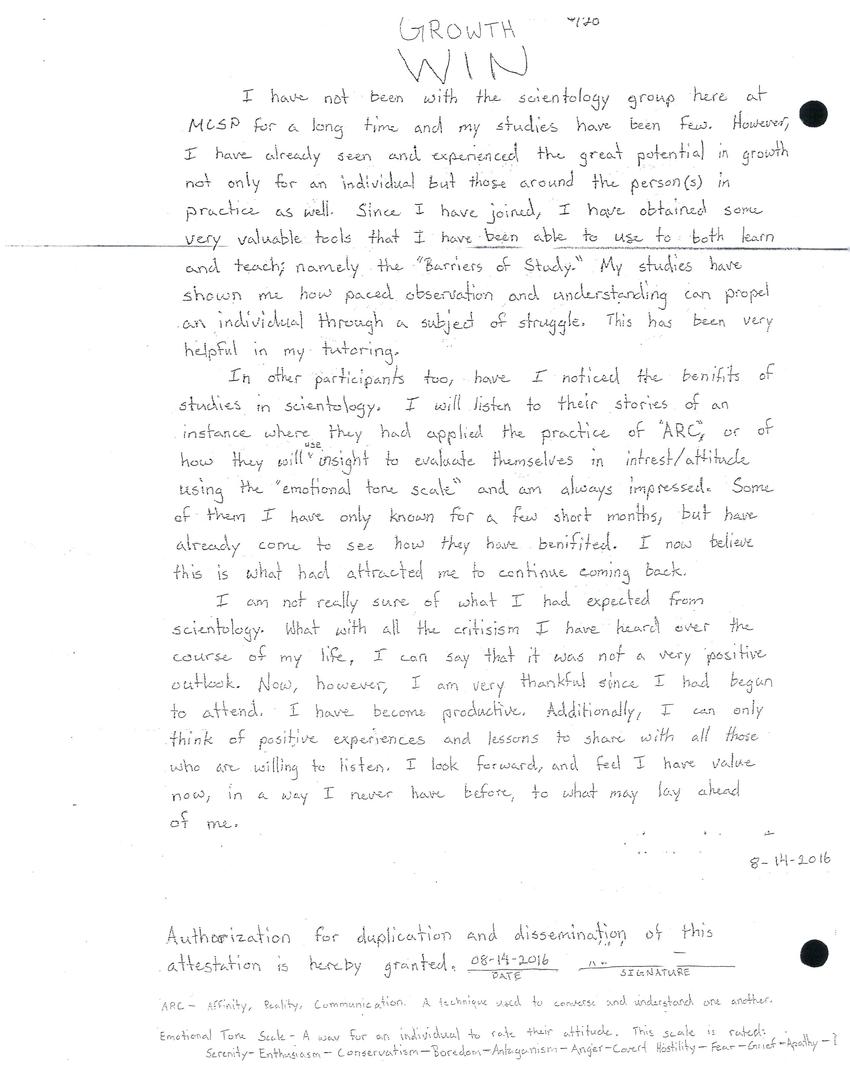 GROWTH
WIN
I have not been with the scientology group here at
MCSP for a long time and my studies have been few. However,
I have already seen and experienced the great potential in growth
not only for an individual but those around the person(s) in
practice as well. Since I have joined, I have obtained some
very valuable tools that I have been able to use to both learn
and teach; namely the "Barriers of Study." My studies have
shown me how paced observation and understanding can propel
an individual through a subject of struggle. This has been very
helpful in my tutoring.
In other participants too, have I noticed the benifits of
studies in scientology. I will listen to their stories of an
instance where they had applied the practice of "ARC", or of
how they will use insight to evaluate themselves in intrest/attitude
using the "emotional tone scale" and am always impressed. Some
of them I have only known for a few short months, but have
already come to see how they have benifited. I now believe
this is what had attracted me to continue coming back.
I am not really sure of what I had expected from
scientology. What with all the critisism I have heard over the
course of my life, I can say that it was not a very positive
outlook. Now, however, I am very thankful since I had begun
to attend. I have become productive. Additionally, I can only
think of positive experiences and lessons to share with all those
who are willing to listen. I look forward, and feel I have value
now, in a way I never have before, to what may lay ahead
of me.
8-14-2016
Authorization for duplication and dissemination of this
attestation is hereby granted. 08-14-2016
DATE SIGNATURE
ARC - Affinity, Reality, Communication. A technique used to converse and understand one another.
Emotional Tone Scale - A way for an individual to rate their attitude. This scale is rated:
Serenity - Enthusiasm - Conservatism - Boredom - Antagonism - Anger - Covert Hostility - Fear - Grief - Apathy -